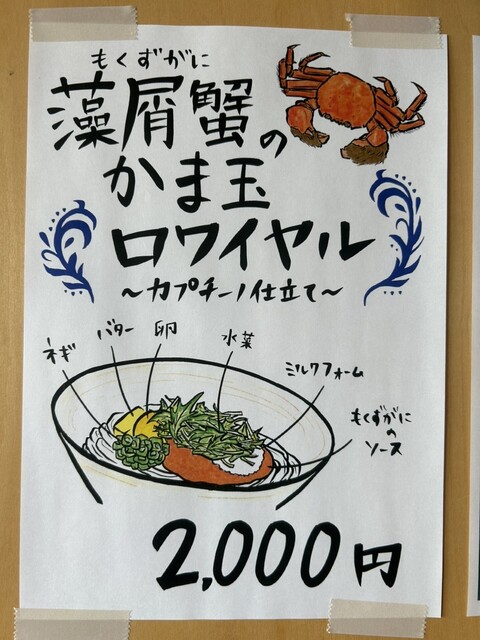 もくずがに
藻屑蟹の
かま玉
ロワイヤル
～カプチーノ仕立て～
ネギ
バター
卵
水菜
ミルクフォーム
もくずがに
の
ソース
2,000円